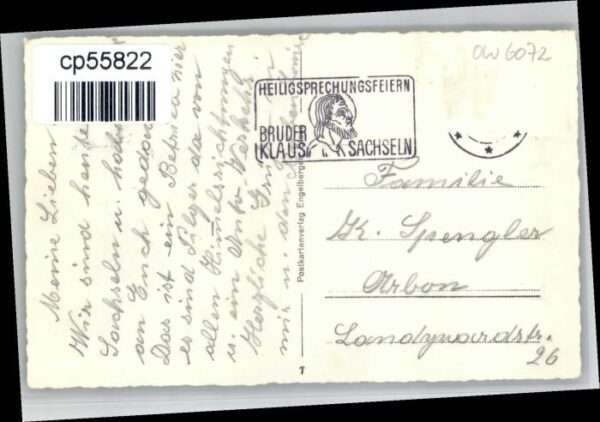 cp55822
OW 6072
HEILIGSPRECHUNGSFEIERN
BRUDER
KLAUS SACHSELN
Meine Lieben
Wir sind heute
Sachseln u. habe
an Euch gedacht
Das ist ein Betrieb hier
es sind Pilger da von
allen Himmelsrichtungen
u. ein Auto-Verkehr!
Herzliche Grüsse
mir u. den
Postkartenverlag Engelberger
Familie
K. Spengler
Arbon
Landquardstr.
26
7